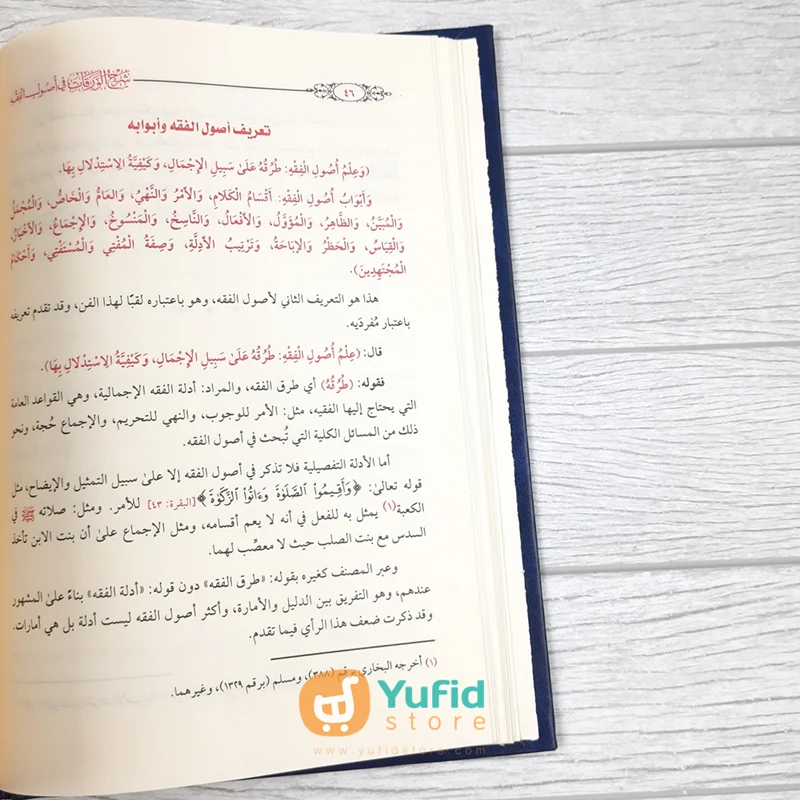 شرح الورقات في أصول الفقه
٤٦
تعريف أصول الفقه وأبوابه
(وَعِلْمُ أُصُولِ الْفِقْهِ: طُرُقُهُ عَلَىٰ سَبِيلِ الْإِجْمَالِ، وَكَيْفِيَّةُ الِاسْتِدْلَالِ بِهَا.
وَأَبْوَابُ أُصُولِ الْفِقْهِ: أَقْسَامُ الْكَلَامِ، وَالْأَمْرُ وَالنَّهْيُ، وَالْعَامُّ وَالْخَاصُّ، وَالْمُجْمَلُ
وَالْمُبَيَّنُ، وَالظَّاهِرُ، وَالْمُؤَوَّلُ، وَالْأَفْعَالُ، وَالنَّاسِخُ، وَالْمَنْسُوخُ، وَالْإِجْمَاعُ، وَالْأَخْبَارُ،
وَالْقِيَاسُ، وَالْحَظْرُ وَالْإِبَاحَةُ، وَتَرْتِيبُ الْأَدِلَّةِ، وَصِفَةُ الْمُفْتِي وَالْمُسْتَفْتِي، وَأَحْكَامُ
الْمُجْتَهِدِينَ).
هذا هو التعريف الثاني لأصول الفقه، وهو باعتباره لقبًا لهذا الفن، وقد تقدم تعريفه
باعتبار مُفردَيه.
قال: (عِلْمُ أُصُولِ الْفِقْهِ: طُرُقُهُ عَلَىٰ سَبِيلِ الْإِجْمَالِ، وَكَيْفِيَّةُ الِاسْتِدْلَالِ بِهَا).
فقوله: (طُرُقُهُ) أي طرق الفقه، والمراد: أدلة الفقه الإجمالية، وهي القواعد العامة
التي يحتاج إليها الفقيه، مثل: الأمر للوجوب، والنهي للتحريم، والإجماع حُجة، ونحو
ذلك من المسائل الكلية التي تُبحث في أصول الفقه.
أما الأدلة التفصيلية فلا تذكر في أصول الفقه إلا علىٰ سبيل التمثيل والإيضاح، مثل
قوله تعالىٰ: ﴿وَأَقِيمُوا۟ ٱلصَّلَوٰةَ وَءَاتُوا۟ ٱلزَّكَوٰةَ﴾ [البقرة: ٤٣] للأمر. ومثل: صلاته ﷺ في
الكعبة(١) يمثل به للفعل في أنه لا يعم أقسامه، ومثل الإجماع علىٰ أن بنت الابن تأخذ
السدس مع بنت الصلب حيث لا معصِّب لهما.
وعبر المصنف كغيره بقوله: «طرق الفقه» دون قوله: «أدلة الفقه» بناءً علىٰ المشهور
عندهم، وهو التفريق بين الدليل والأمارة، وأكثر أصول الفقه ليست أدلة بل هي أمارات.
وقد ذكرت ضعف هذا الرأي فيما تقدم.
(١) أخرجه البخاري برقم (٣٨٨)، ومسلم (برقم ١٣٢٩)، وغيرهما.
Yufid
store
www.yufidstore.com